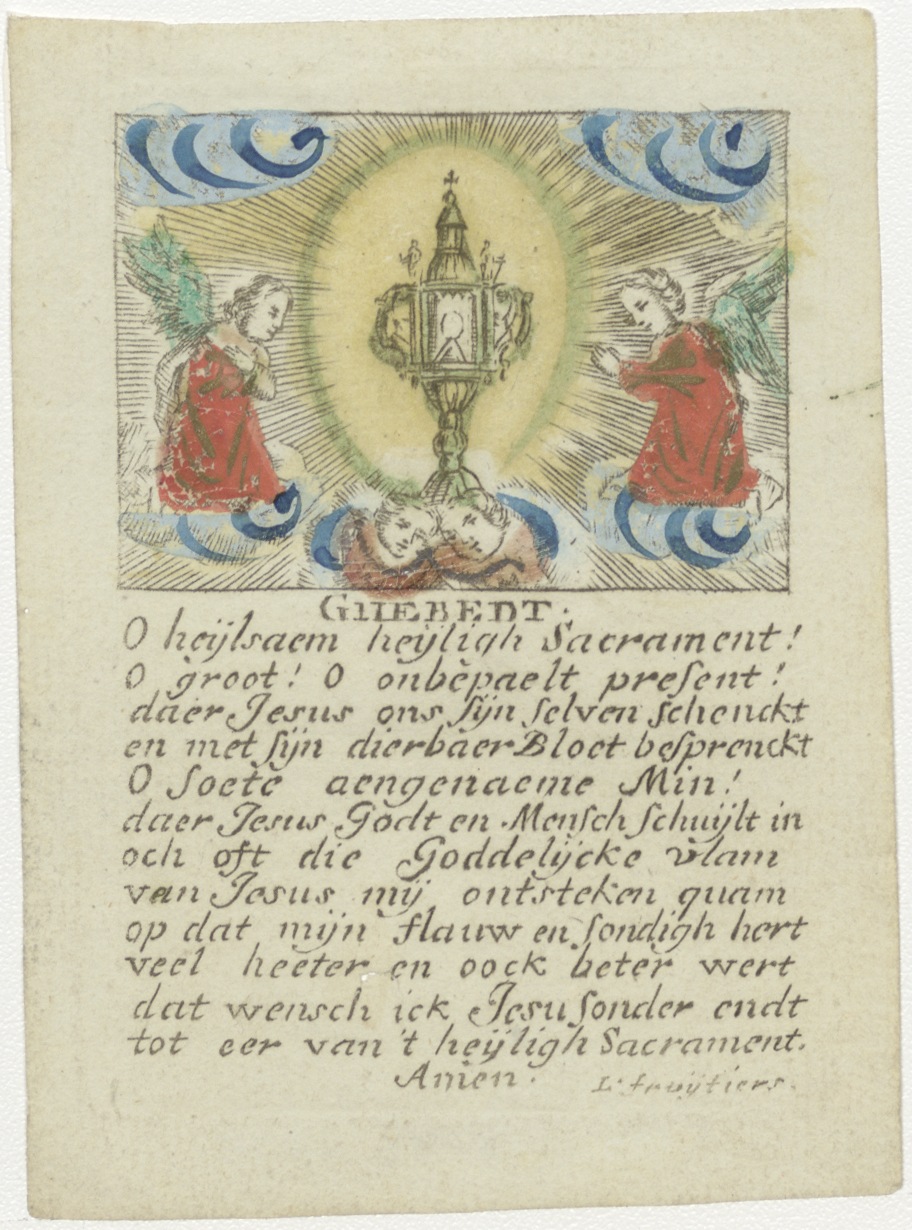 GHEBEDT.
O heijlsaem heijligh Sacrament!
O groot! O onbepaelt preſent!
daer Jesus ons ſijn ſelven ſchenckt
en met ſijn dierbaer Bloet beſprenckt
O ſoete aengenaeme Min!
daer Jesus Godt en Menſch ſchuijlt in
och oft die Goddelijcke vlam
van Jesus mij ontsteken quam
op dat mijn flauw en ſondigh hert
veel heeter en oock beter wert
dat wensch ick Jesu ſonder endt
tot eer van't heijligh Sacrament.
Amen.
L. fruijtiers.